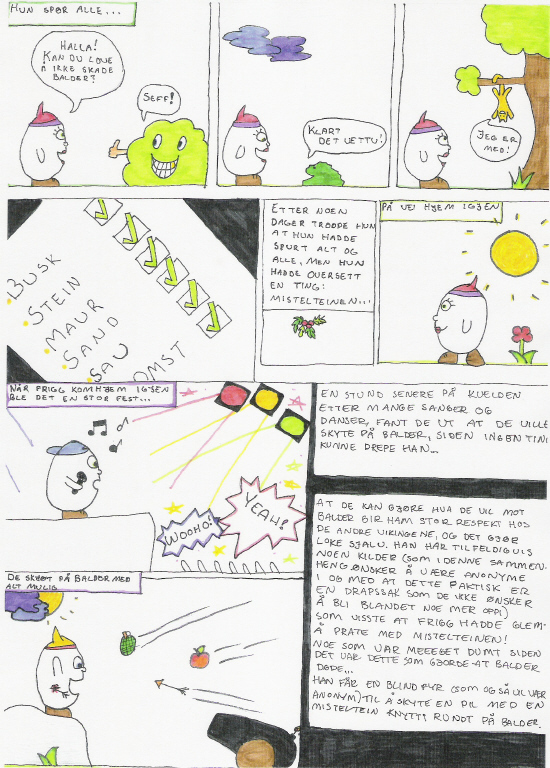 HUN SPØR ALLE...
HALLA!
KAN DU LOVE
Å IKKE SKADE
BALDER?
SEFF!
KLART
DET VETTU!
JEG ER
MED!
BUSK
STEIN
MAUR
SAND
SAU
OMST
ETTER NOEN
DAGER TRODDE HUN
AT HUN HADDE
SPURT ALT OG
ALLE, MEN HUN
HADDE OVERSETT
EN TING:
MISTELTEINEN...
PÅ VEI HJEM IGJEN
NÅR FRIGG KOM HJEM IGJEN
BLE DET EN STOR FEST...
WOOHO!
YEAH!
EN STUND SENERE PÅ KVELDEN
ETTER MANGE SANGER OG
DANSER, FANT DE UT AT DE VILLE
SKYTE PÅ BALDER, SIDEN INGENTING
KUNNE DREPE HAN...
AT DE KAN GJØRE HVA DE VIL MOT
BALDER GIR HAM STOR RESPEKT HOS
DE ANDRE VIKINGENE, OG DET GJØR
LOKE SJALU. HAN HAR TILFELDIGVIS
NOEN KILDER (SOM I DENNE SAMMEN-
HENG ØNSKER Å VÆRE ANONYME
I OG MED AT DETTE FAKTISK ER
EN DRAPSSAK SOM DE IKKE ØNSKER
Å BLI BLANDET NOE MER OPPI)
SOM VISSTE AT FRIGG HADDE GLEMT
Å PRATE MED MISTELTEINEN!
NOE SOM VAR MEEEGET DUMT SIDEN
DET VAR DETTE SOM GJORDE AT BALDER
DØDE...
HAN FÅR EN BLIND FYR (SOM OGSÅ VIL VÆRE
ANONYM) TIL Å SKYTE EN PIL MED EN
MISTELTEIN KNYTT RUNDT PÅ BALDER.
DE SKJØT PÅ BALDER MED
ALT MULIG